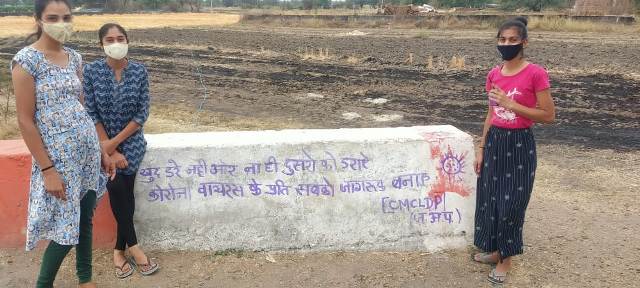 खुद डरे नही और ना ही दुसरो को डराऐ
कोरोना वायरस के प्रति सबको जागरूक बनाऐ
[CMCLDP]
(ज.अ.प.)